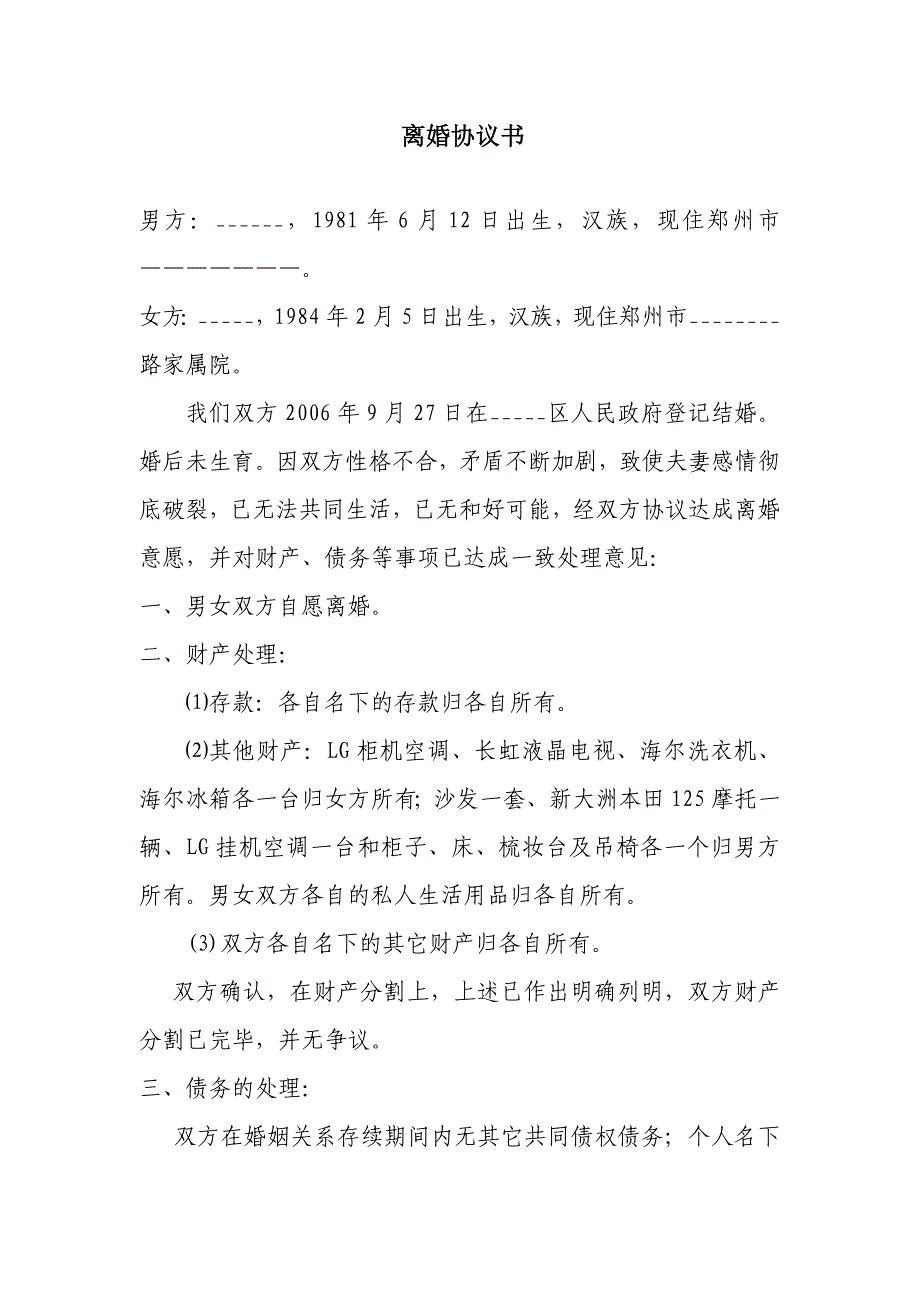 离婚协议书
男方：______，1981 年 6 月 12 日出生，汉族，现住郑州市
———————。
女方：_____，1984 年 2 月 5 日出生，汉族，现住郑州市________
路家属院。
我们双方 2006 年 9 月 27 日在_____区人民政府登记结婚。
婚后未生育。因双方性格不合，矛盾不断加剧，致使夫妻感情彻
底破裂，已无法共同生活，已无和好可能，经双方协议达成离婚
意愿，并对财产、债务等事项已达成一致处理意见：
一、男女双方自愿离婚。
二、财产处理：
⑴存款：各自名下的存款归各自所有。
⑵其他财产：LG 柜机空调、长虹液晶电视、海尔洗衣机、
海尔冰箱各一台归女方所有；沙发一套、新大洲本田 125 摩托一
辆、LG 挂机空调一台和柜子、床、梳妆台及吊椅各一个归男方
所有。男女双方各自的私人生活用品归各自所有。
⑶ 双方各自名下的其它财产归各自所有。
双方确认，在财产分割上，上述已作出明确列明，双方财产
分割已完毕，并无争议。
三、债务的处理：
双方在婚姻关系存续期间内无其它共同债权债务；个人名下